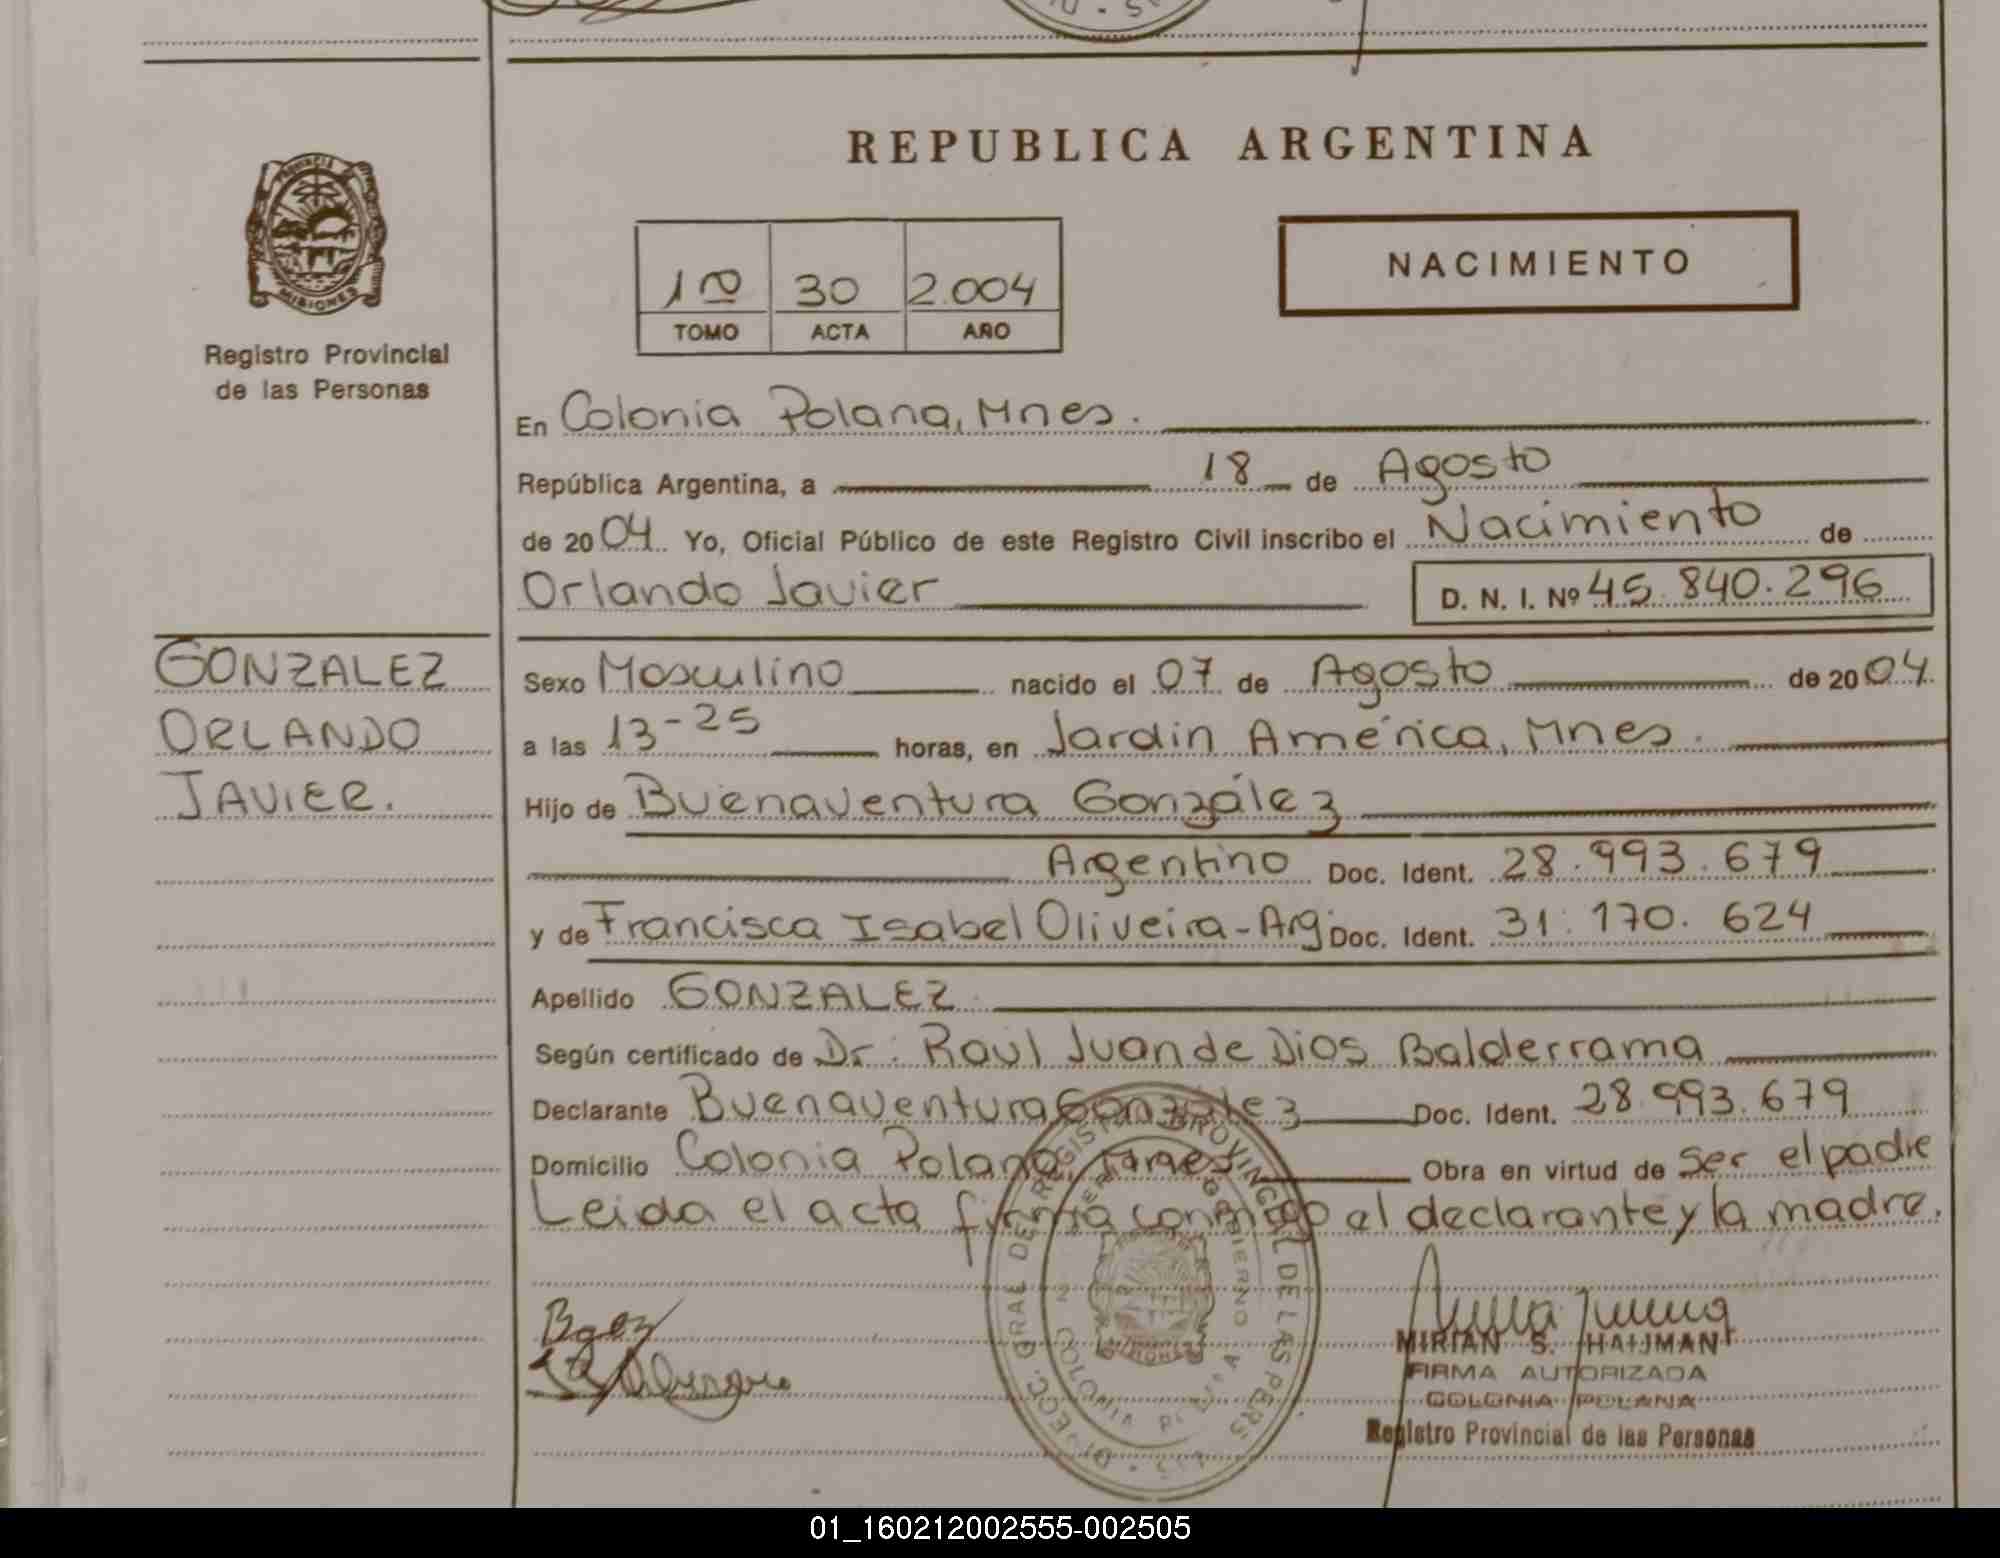 REPUBLICA ARGENTINA
PROVINCIA
MISIONES
Registro Provincial
de las Personas
1º 30 2.004
TOMO ACTA AÑO
NACIMIENTO
En Colonia Polana, Mnes.
República Argentina, a 18 de Agosto
de 2004 Yo, Oficial Público de este Registro Civil inscribo el Nacimiento de
Orlando Javier D. N. I. Nº 45.840.296
GONZALEZ
ORLANDO
JAVIER.
Sexo Masculino nacido el 07 de Agosto de 2004
a las 13-25 horas, en Jardin América, Mnes.
Hijo de Buenaventura González
Argentino Doc. Ident. 28.993.679
y de Francisca Isabel Oliveira-Arg Doc. Ident. 31.170.624
Apellido GONZALEZ
Según certificado de Dr. Raúl Juan de Dios Balderrama
Declarante Buenaventura González Doc. Ident. 28.993.679
Domicilio Colonia Polana, Mnes Obra en virtud de ser el padre
Leida el acta firma conmigo el declarante y la madre.
DIRECC. GRAL DE REGISTRO PROVINCIAL DE LAS PERS
MIRIAN S. HAUMAN
FIRMA AUTORIZADA
COLONIA POLANA
Registro Provincial de las Personas
01_160212002555-002505